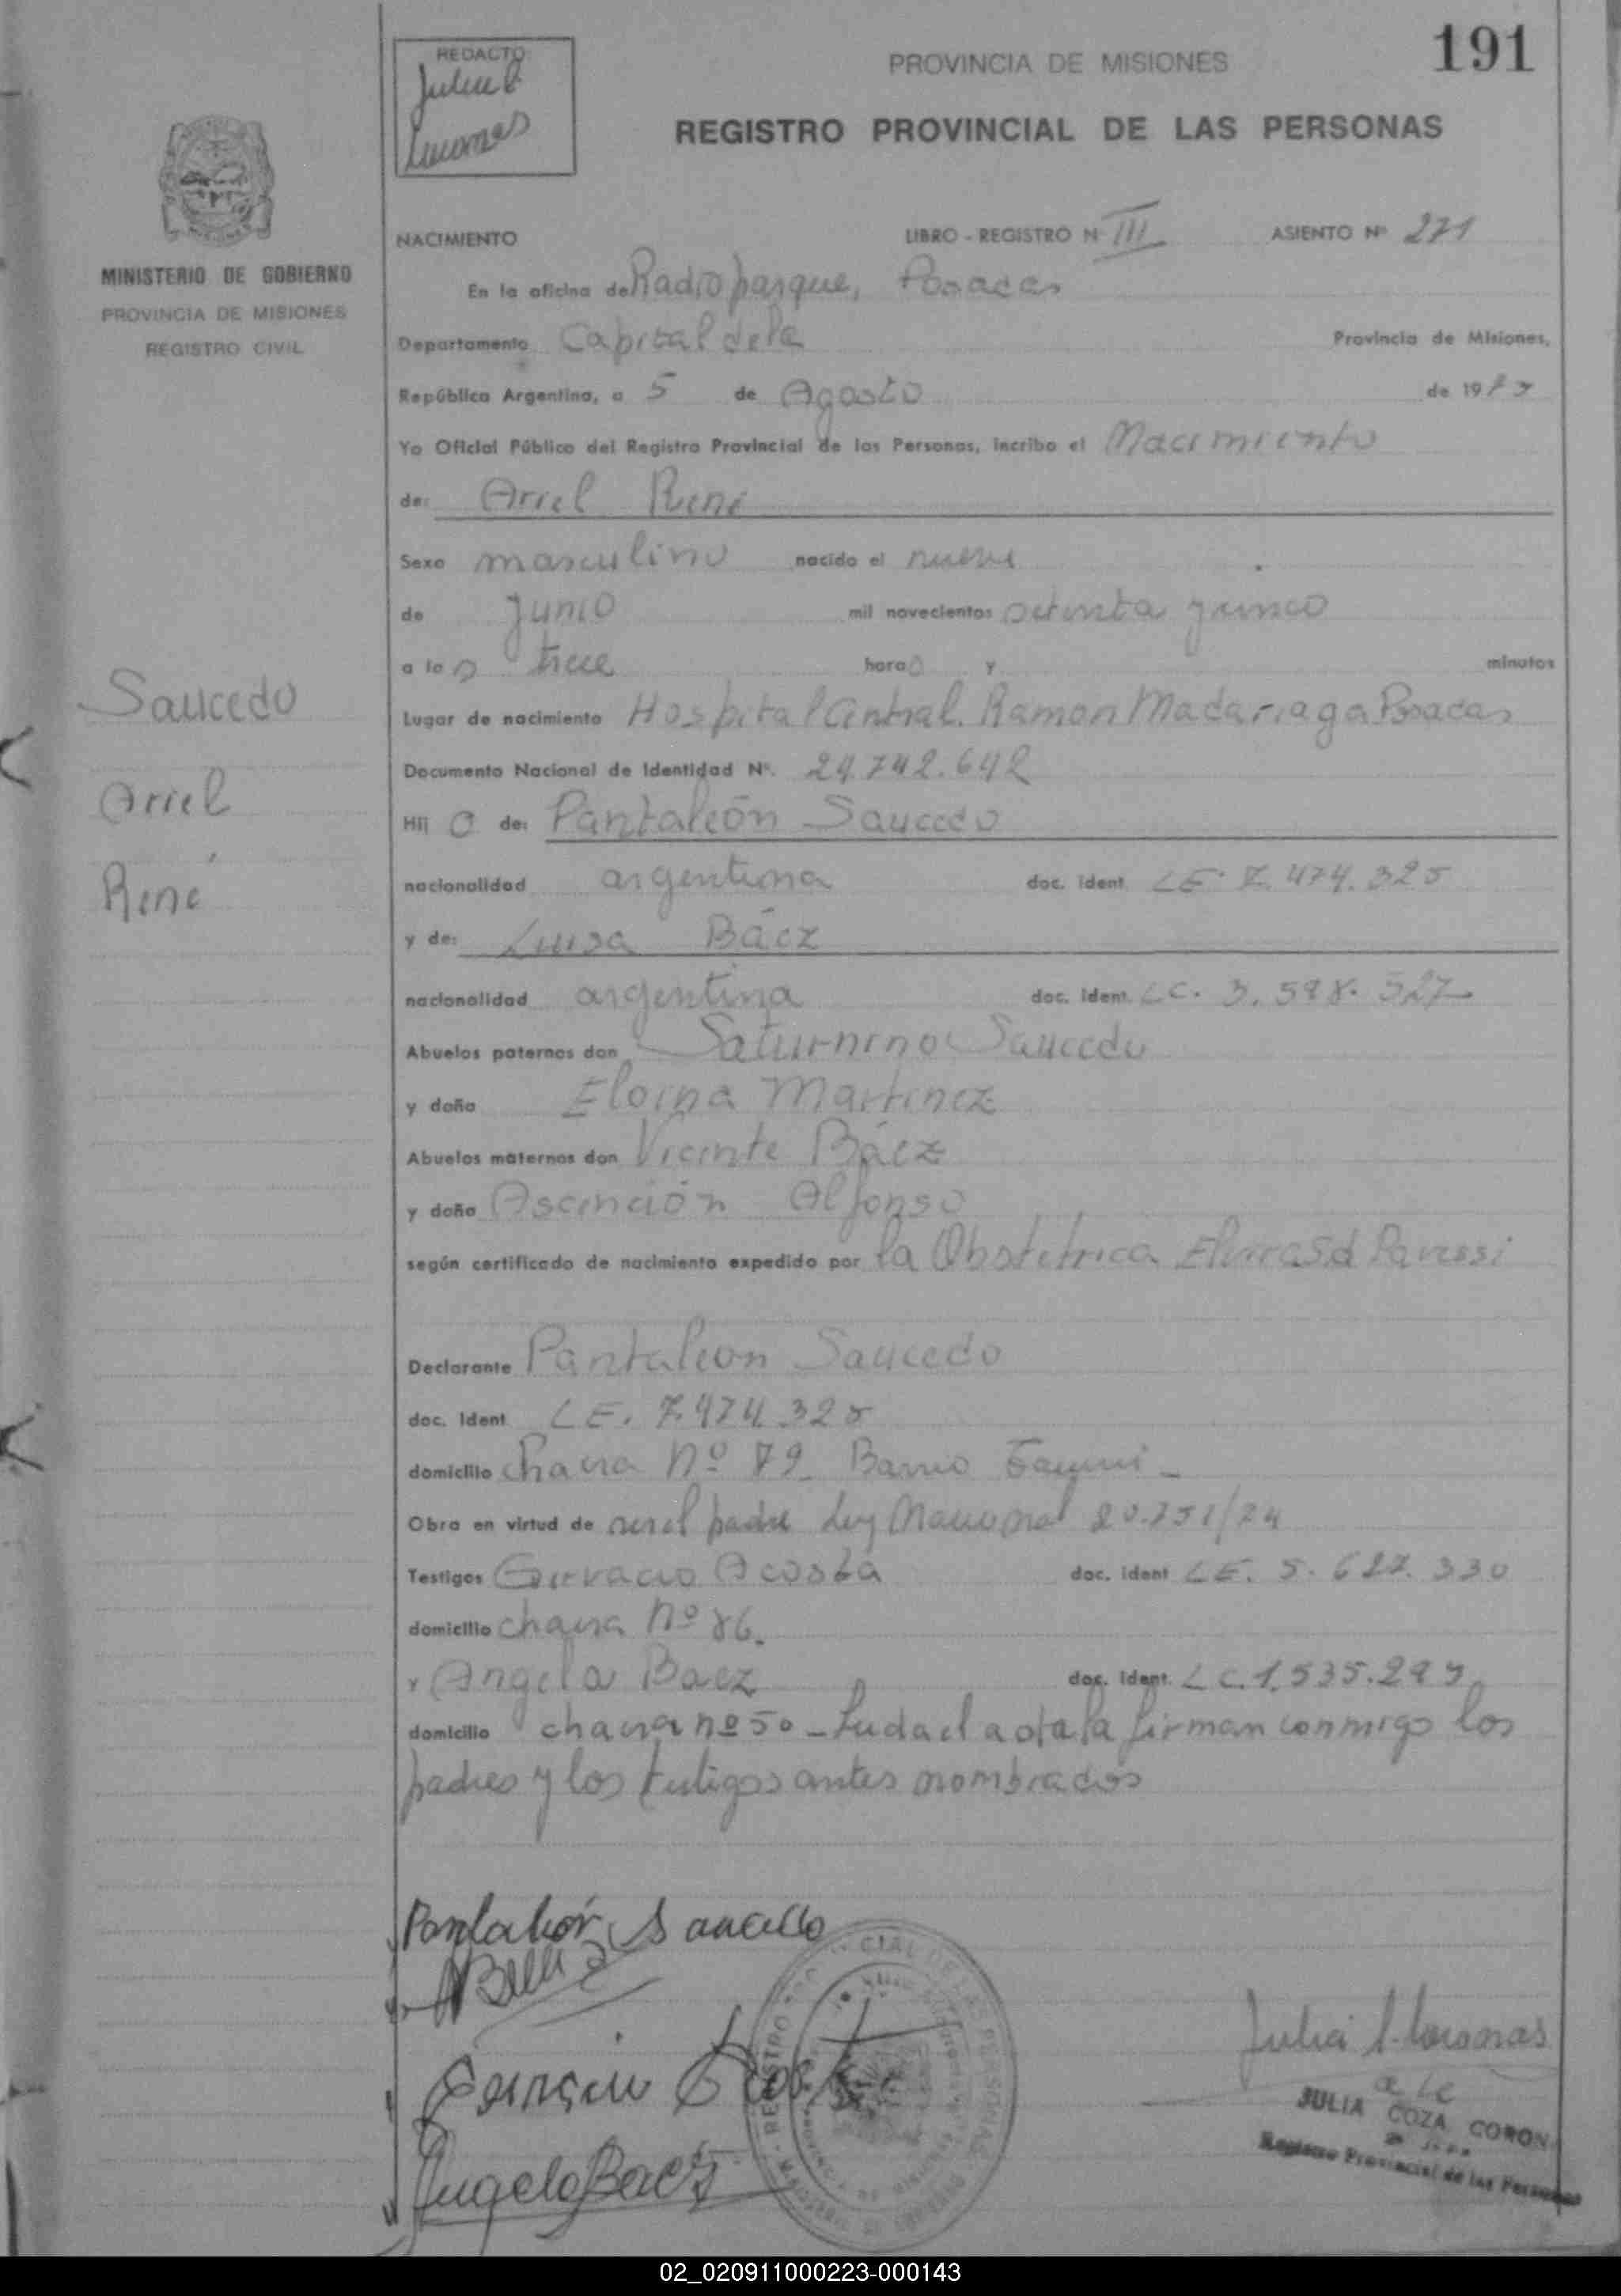 191
REDACTO
PROVINCIA DE MISIONES
REGISTRO PROVINCIAL DE LAS PERSONAS
MINISTERIO DE GOBIERNO
PROVINCIA DE MISIONES
REGISTRO CIVIL
NACIMIENTO LIBRO - REGISTRO Nº III ASIENTO Nº 271
En la oficina de Radioparque, Posadas
Departamento Capital de la Provincia de Misiones,
República Argentina, a 5 de Agosto de 19
Yo Oficial Público del Registro Provincial de las Personas, incribo el Nacimiento
de: Ariel René
Sexo masculino nacido el nueve
de Junio mil novecientos setenta y cinco
a las trece horas y minutos
Saucedo
Ariel
René
Lugar de nacimiento Hospital Central. Ramon Madariaga Posadas
Documento Nacional de Identidad Nº. 24.742.642
Hij o de: Pantaleón Saucedo
nacionalidad argentina doc. ident. LE. 7.474.325
y de: Luisa Báez
nacionalidad argentina doc. ident. LC. 3.598.527
Abuelos paternos don Saturnino Saucedo
y doña Eloina Martinez
Abuelos maternos don Vicente Báez
y doña Ascención Alfonso
según certificado de nacimiento expedido por la Obstetrica Elvira S d
Declarante Pantaleon Saucedo
doc. Ident LE. 7.474.325
domicilio chacra Nº 79 Barrio
Obra en virtud de ser el padre Ley Nacional 20.751/74
Testigos Gervacio Acosta doc. ident LE. 5.627.330
domicilio chacra Nº 86.
y Angela Baez doc. ident. LC. 1.535.293
domicilio chacra nº 50 - Leida el acta la firman conmigo los
padres y los testigos antes nombrados
Pantaleón Saucedo
Angela Baez
JULIA COZA CORON
Registro Provincial de las Personas
02_020911000223-000143